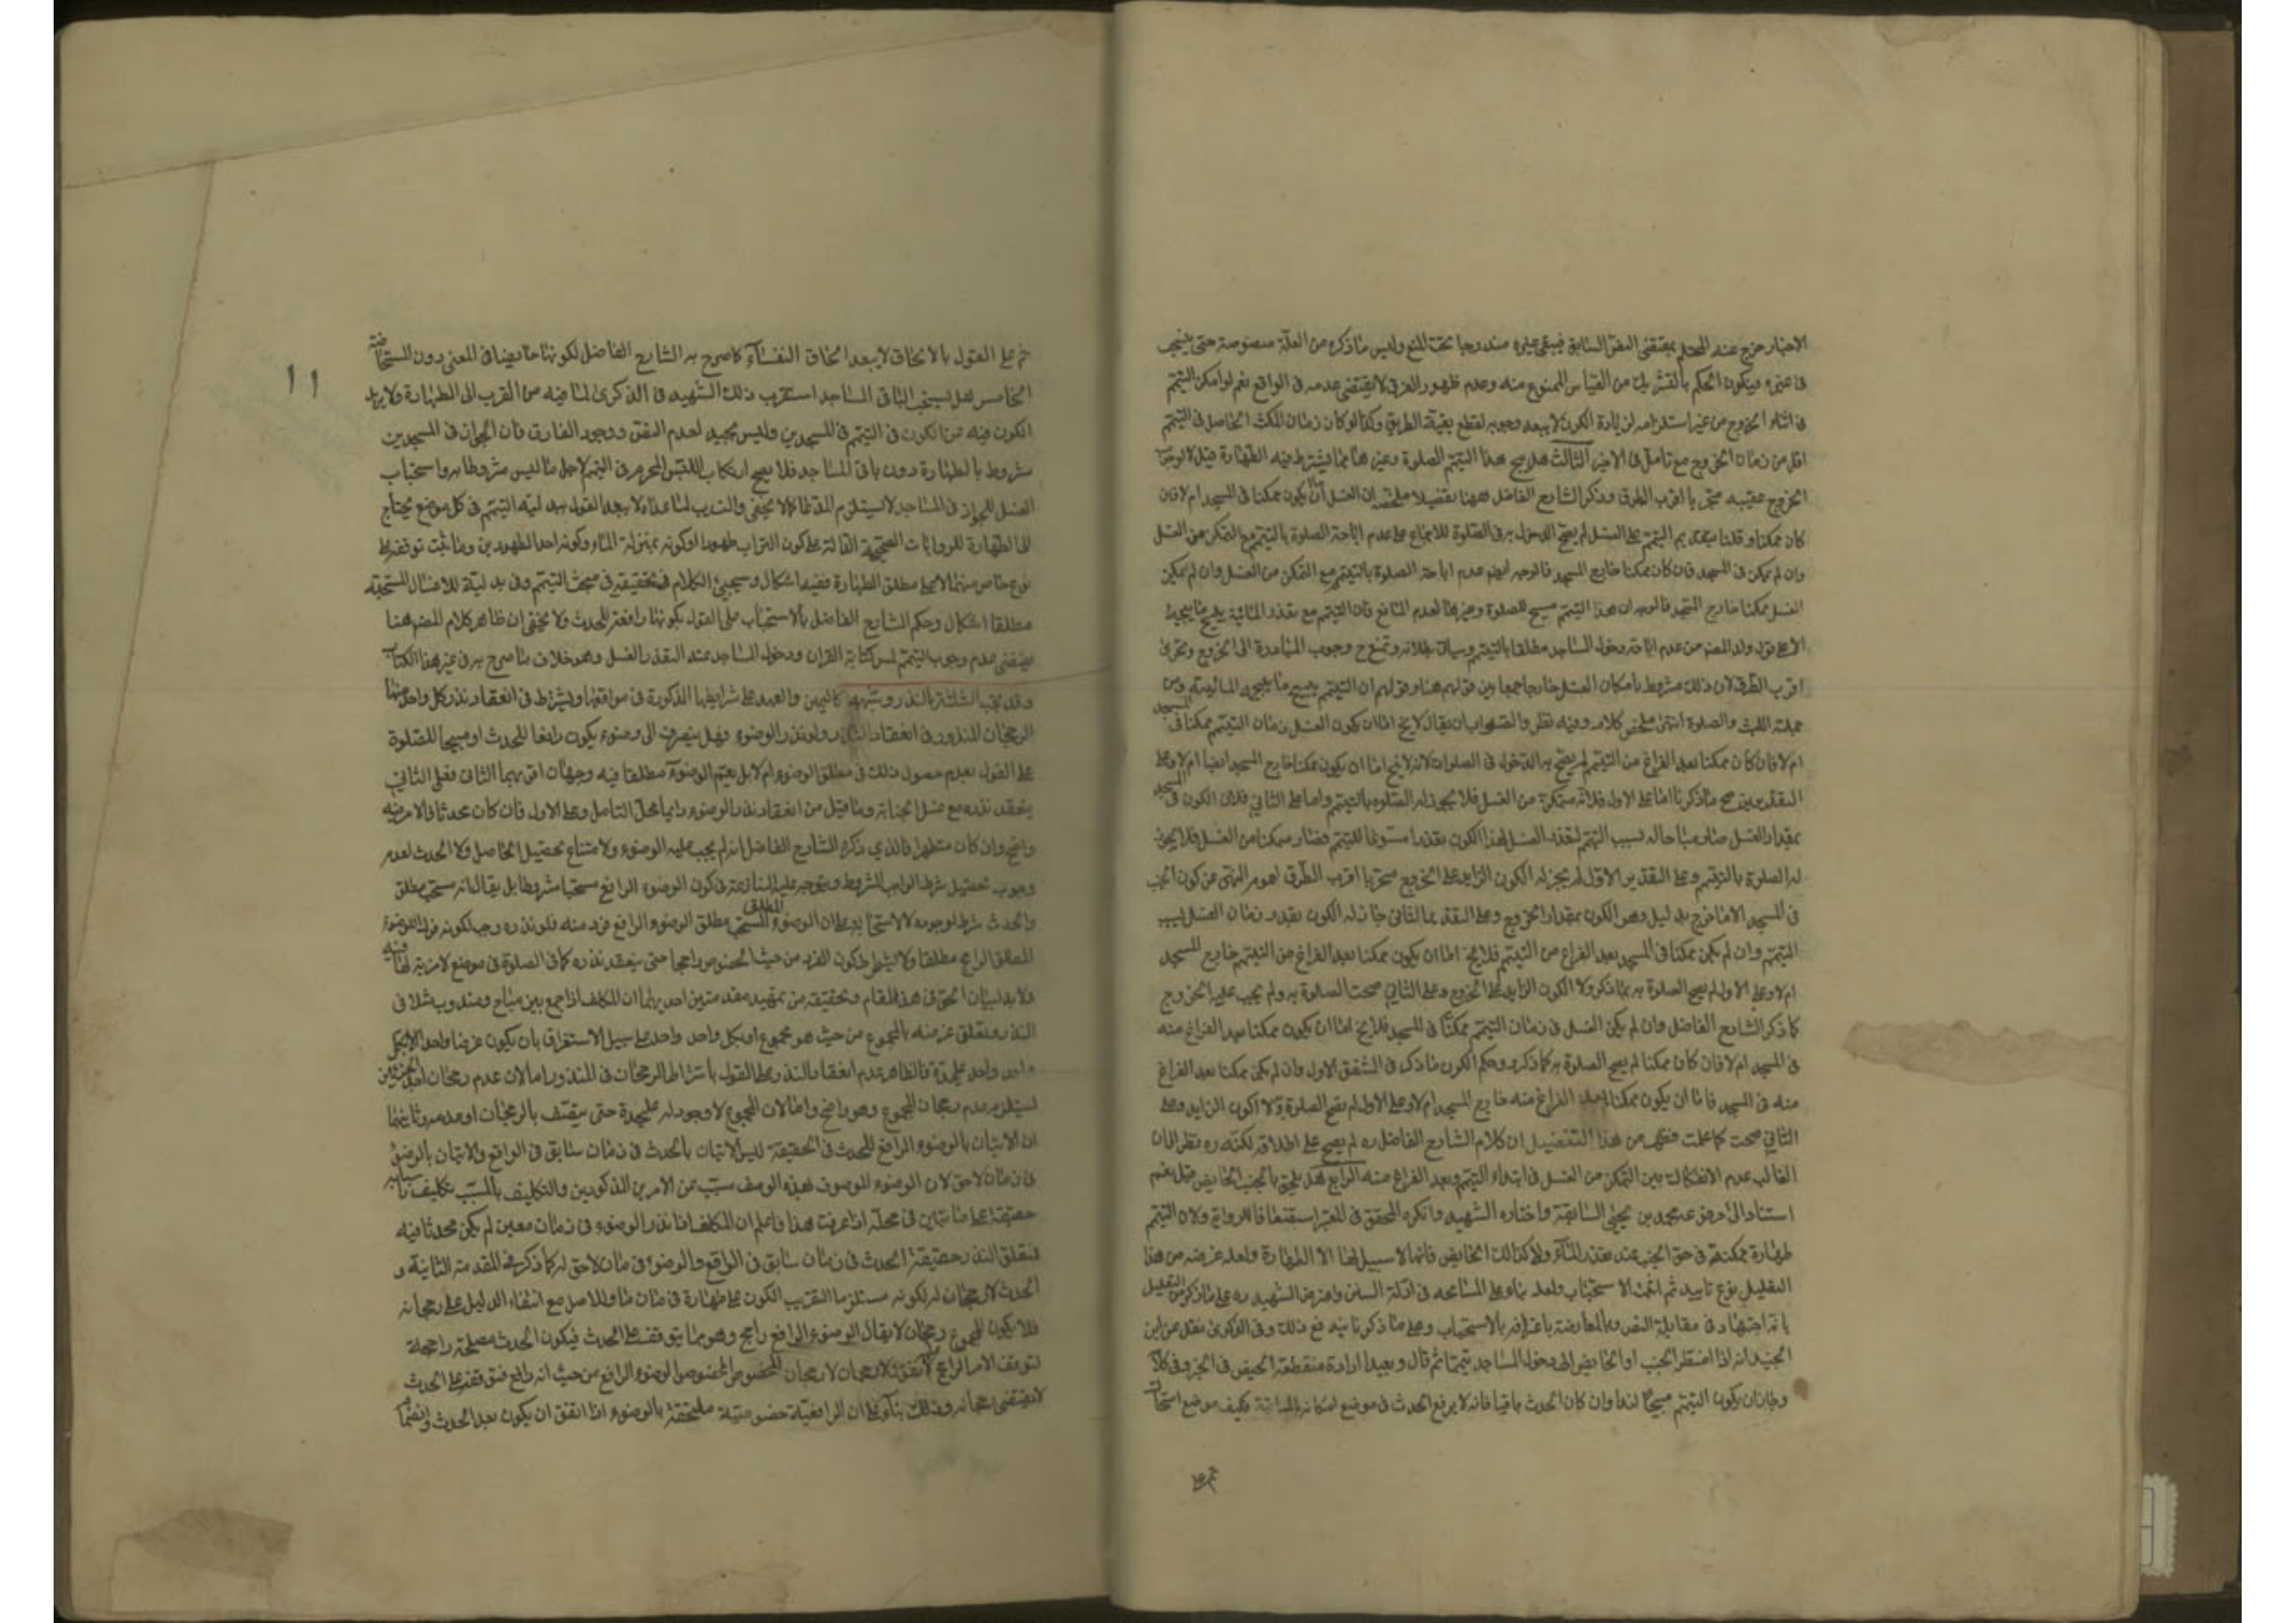 الاخبار خرج عنه المحتلم بمقتضى النص السابق فيبقى غيره مندرجا تحت المنع وليس ما ذكره من العلة منصوصة حتى
فى غيره ويكون الحكم بالتشريك من القياس الممنوع منه وعدم ظهور الفرق لا يقتضى عدمه فى الواقع نعم لو امكن التيمم
فى اثناء الخروج من غير استلزامه لزيادة الكون لا يبعد وجوبه لقطع بقية الطريق وكذا لو كان زمان المكث الحاصل فى التيمم
اقل من زمان الخروج مع تامل فى الاخير الثالث هل يبيح هذا التيمم الصلوة وغيرها مما يشترط فيه الطهارة قيل لا لوجوب
الخروج عقيبه متحريا اقرب الطرق وذكر الشارح الفاضل ههنا تفصيلا ملخصه ان الغسل اما ان يكون ممكنا فى المسجد ام لا فان
كان ممكنا وقلنا بتقديم التيمم على الغسل لم يصح الدخول به فى الصلوة للاجماع على عدم اباحة الصلوة بالتيمم مع التمكن من الغسل
وان لم يمكن فى المسجد فان كان ممكنا خارج المسجد فالوجه ايضا عدم اباحة الصلوة بالتيمم مع التمكن من الغسل وان لم يكن
الغسل ممكنا خارج المسجد فالوجه ان هذا التيمم مبيح للصلوة وغيرها لعدم المانع فان التيمم مع تعذر المائية يبيح ما يبيحه
الا على قول ولد المصنف من عدم اباحة دخول المساجد مطلقا بالتيمم وسياتى بطلانه وتمنع ح وجوب المبادرة الى الخروج وتحرى
اقرب الطرق لان ذلك مشروط بامكان الغسل خارجا جمعا بين قولهم هنا وقولهم ان التيمم يبيح ما يبيحه المائية ومن
جملته اللبث والصلوة انتهى ملخص كلامه وفيه نظر والصواب ان يقال لا يخ اما ان يكون الغسل زمان التيمم ممكنا فى المسجد
ام لا فان كان ممكنا بعد الفراغ من التيمم لم يصح به الدخول فى الصلوات لانه لا يخ اما ان يكون ممكنا خارج المسجد ايضا ام لا وعلى
التقديرين صح ما ذكرنا اما على الاول فلانه متمكن من الغسل فلا يجوز له الصلوة بالتيمم واما على الثانى فلان الكون فى المسجد
بمقدار الغسل صار مباحا له بسبب التيمم لتعذر الغسل لهذا الكون تعذرا مسوغا للتيمم فصار متمكنا من الغسل فلا يجوز
له الصلوة بالتيمم وعلى التقدير الاول لم يجز له الكون الزايد على الخروج متحريا اقرب الطرق لعموم النهى عن كون الجنب
فى المسجد الا ما خرج بدليل وهو الكون بمقدار الخروج وعلى التقدير الثانى جاز له الكون بقدر زمان الغسل بسبب
التيمم وان لم يكن ممكنا فى المسجد بعد الفراغ من التيمم فلا يخ اما ان يكون ممكنا بعد الفراغ من التيمم خارج المسجد
ام لا وعلى الاول لم يصح الصلوة به بما ذكر ولا الكون الزايد على الخروج وعلى الثانى صحت الصلوة به ولم يجب عليه الخروج
كما ذكر الشارح الفاضل وان لم يكن الغسل فى زمان التيمم ممكنا فى المسجد فلا يخ اما ان يكون ممكنا بعد الفراغ منه
فى المسجد ام لا فان كان ممكنا لم يصح الصلوة به كما ذكر وحكم الكون ما ذكر فى الشقق الاول وان لم يكن ممكنا بعد الفراغ
منه فى المسجد فاما ان يكون ممكنا بعد الفراغ منه خارج المسجد ام لا وعلى الاول لم يصح الصلوة ولا الكون الزايد وعلى
الثانى صحت كما علمت فظهر من هذا التفصيل ان كلام الشارح الفاضل ره لم يصح على اطلاقه لكنه ره نظر الى ان
الغالب عدم الانفكاك بين التمكن من الغسل فى ابتداء التيمم وبعد الفراغ منه الرابع هل يلحق بالجنب الحايض قيل نعم
استنادا الى مرفوعة محمد بن يحيى السابقة واختاره الشهيد وانكره المحقق فى المعتبر استضعافا للرواية ولان التيمم
طهارة ممكنة فى حق الجنب عند عدم الماء ولا كذالك الحايض فانها لا سبيل لها الا الطهارة ولعله غرضه من هذا
التعليل نوع تاييد ثم اثبت الاستحباب ولعله بناء على المسامحة فى ادلة السنن واعترض الشهيد ره على ما ذكر من التعليل
بانه اجتهاد فى مقابلة النص وبالمعارضة باعترافه بالاستحباب وعلى ما ذكرنا يندفع ذلك وفى الذكرى نقل عن ابن
الجنيد انه اذا اضطر الجنب او الحايض الى دخول المساجد تيمما ثم قال وبعيد ارادة منقطعة الحيض فى الخبر وفى كلا
وجاز ان يكون التيمم مبيحا لهذا وان كان الحدث باقيا فانه لا يرفع الحدث فى موضع فكيف موضع
ثم على
ثم على القول بالالحاق لا يبعد الحاق النفساء كما صرح به الشارح الفاضل لكونها حايضا فى المعنى دون المستحاضة
الخامس هل يستحب لباقى المساجد استقرب ذلك الشهيد فى الذكرى لما فيه من القرب الى الطهارة ولا يزيد
الكون فيه عن الكون فى التيمم فى المسجدين وليس بجيد لعدم النص ووجود الفارق فان الجواز فى المسجدين
مشروط بالطهارة دون باقى المساجد فلا يصح ارتكاب اللبث المحرم فى التيمم لاجل ما ليس مشروطا به واستحباب
الغسل للجواز فى المساجد لا يستلزم المدعا كما لا يخفى والتدرب لما عداه لا بعد القول ببدلية التيمم فى كل موضع يحتاج
الى الطهارة للروايات الصحيحة الدالة على كون التراب طهورا او كونه بمنزلة الماء وكونه احد الطهورين وما ثبت توقفه على
نوع خاص منهما لا على مطلق الطهارة ففيه اشكال وسيجيئ الكلام فى تحقيقه فى مبحث التيمم وفى بدليته للاغسال المستحبة
مطلقا اشكال وحكم الشارح الفاضل بالاستحباب على القول بكونها رافعة للحدث ولا يخفى ان ظاهر كلام المصنف ههنا
يقتضى عدم وجوب التيمم لمس كتابة القران ودخول المساجد عند التعذر الغسل وهو خلاف ما صرح به فى غير هذا الكتاب
وقد يجب الثلثة بالنذر وشبهه كاليمين والعهد على شرايطها المذكورة فى مواقعها ويشترط فى انعقاد نذر كل واحد منها
الرجحان للمنذور فى انعقاد النذر ولو نذر الوضوء فهل ينصرف الى وضوء يكون رافعا للحدث او مبيحا للصلوة
على القول بعدم حصول ذلك فى مطلق الوضوء ام لا بل يعم الوضوء مطلقا فيه وجهان اقربهما الثانى فعلى الثانى
ينعقد نذره مع غسل الجنابة وما قيل من انعقاد نذر الوضوء دايما محل التامل وعلى الاول فان كان محدثا فالامر فيه
واضح وان كان متطهرا فالذى ذكره الشارح الفاضل انه لم يجب عليه الوضوء ولامتناع تحصيل الحاصل ولا الحدث لعدم
وجوب تحصيل شرط الواجب المشروط ويتوجه عليه المنازعة فى كون الوضوء الرافع مستحبا مشروطا بل يقال انه مستحب مطلق
والحدث شرط لوجوده لا لاستحبابه على ان الوضوء المستحب المطلق مطلق الوضوء والرافع فرد منه فلو نذره وجب لكونه فردا للوضوء
المطلق الراجح مطلقا ولا يشترط كون الفرد من حيث الخصوص راجحا حتى ينعقد نذره كما فى الصلوة فى موضع لا مزية لها فيه
ولا بد لبيان الحق فى هذا المقام وتحقيقه من تمهيد مقدمتين احديهما ان المكلف اذا جمع بين مباح ومندوب مثلا فى
النذر وتعلق غرضه بالمجموع من حيث هو مجموع او بكل واحد واحد على سبيل الاستغراق بان يكون غرضا واحدا لا بكل
واحد واحد على حدة فالظاهر عدم انعقاد النذر على القول باشتراط الرجحان فى المنذور اما لان عدم رجحان احد الجزئين
يستلزم عدم رجحان المجموع وهو واضح واما لان المجموع لا وجود له على حدة حتى يتصف بالرجحان او عدمه وثانيهما
ان الاتيان بالوضوء الرافع للحدث فى الحقيقة ليس الا تيان بالحدث فى زمان سابق فى الواقع والاتيان بالوضوء
فى زمان لاحق لان الوضوء الموصوف بهذه الوصف سبب عن الامرين المذكورين والتكليف بالمسبب تكليف باسبابه
حقيقة على ما تبين فى محله اذا عرفت هذا فاعلم ان المكلف اذا نذر الوضوء فى زمان معين لم يكن محدثا فيه
فتعلق النذر حقيقة الحدث فى زمان سابق فى الواقع والوضوء فى زمان لاحق له كما ذكر فى المقدمة الثانية و
الحدث لا رجحان له لكونه مستلزما الكون على طهارة فى زمان ما وللاصل مع انتفاء الدليل على رجحانه
فلا يكون للمجموع رجحان لا يقال الوضوء الرافع راجح وهو مما يتوقف على الحدث فيكون الحدث مصلحة راجحة
لتوقف الامر الراجح لا رجحان لخصوص الوضوء الرافع من حيث انه رافع فتوقفه على الحدث
لا يقتضى رجحانه وذلك بناء على ان الرافعية خصوصية ملحقة بالوضوء اذا اتفق ان يكون بعد الحدث
١١